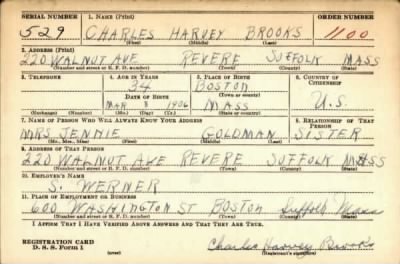 SERIAL NUMBER 1. NAME (Print) ORDER NUMBER
529 CHARLES HARVEY BROOKS 1100
(First) (Middle) (Last)
2. ADDRESS (Print)
220 WALNUT AVE REVERE SUFFOLK MASS
(Number and street or R. F. D. number) (Town) (County) (State)
3. TELEPHONE 4. AGE IN YEARS 5. PLACE OF BIRTH 6. COUNTRY OF CITIZENSHIP
34 BOSTON
DATE OF BIRTH (Town or county)
MAR 8 1906 MASS U.S.
(Exchange) (Number) (Mo.) (Day) (Yr.) (State or country)
7. NAME OF PERSON WHO WILL ALWAYS KNOW YOUR ADDRESS 8. RELATIONSHIP OF THAT PERSON
MRS. JENNIE GOLDMAN SISTER
(Mr., Mrs., Miss) (First) (Middle) (Last)
9. ADDRESS OF THAT PERSON
220 WALNUT AVE REVERE SUFFOLK MASS
(Number and street or R. F. D. number) (Town) (County) (State)
10. EMPLOYER'S NAME
S. WERNER
11. PLACE OF EMPLOYMENT OR BUSINESS
600 WASHINGTON ST BOSTON Suffolk Mass
(Number and street or R. F. D. number) (Town) (County) (State)
I AFFIRM THAT I HAVE VERIFIED ABOVE ANSWERS AND THAT THEY ARE TRUE.
REGISTRATION CARD
D. S. S. Form 1 (over) Charles Harvey Brooks
(Registrant's signature)